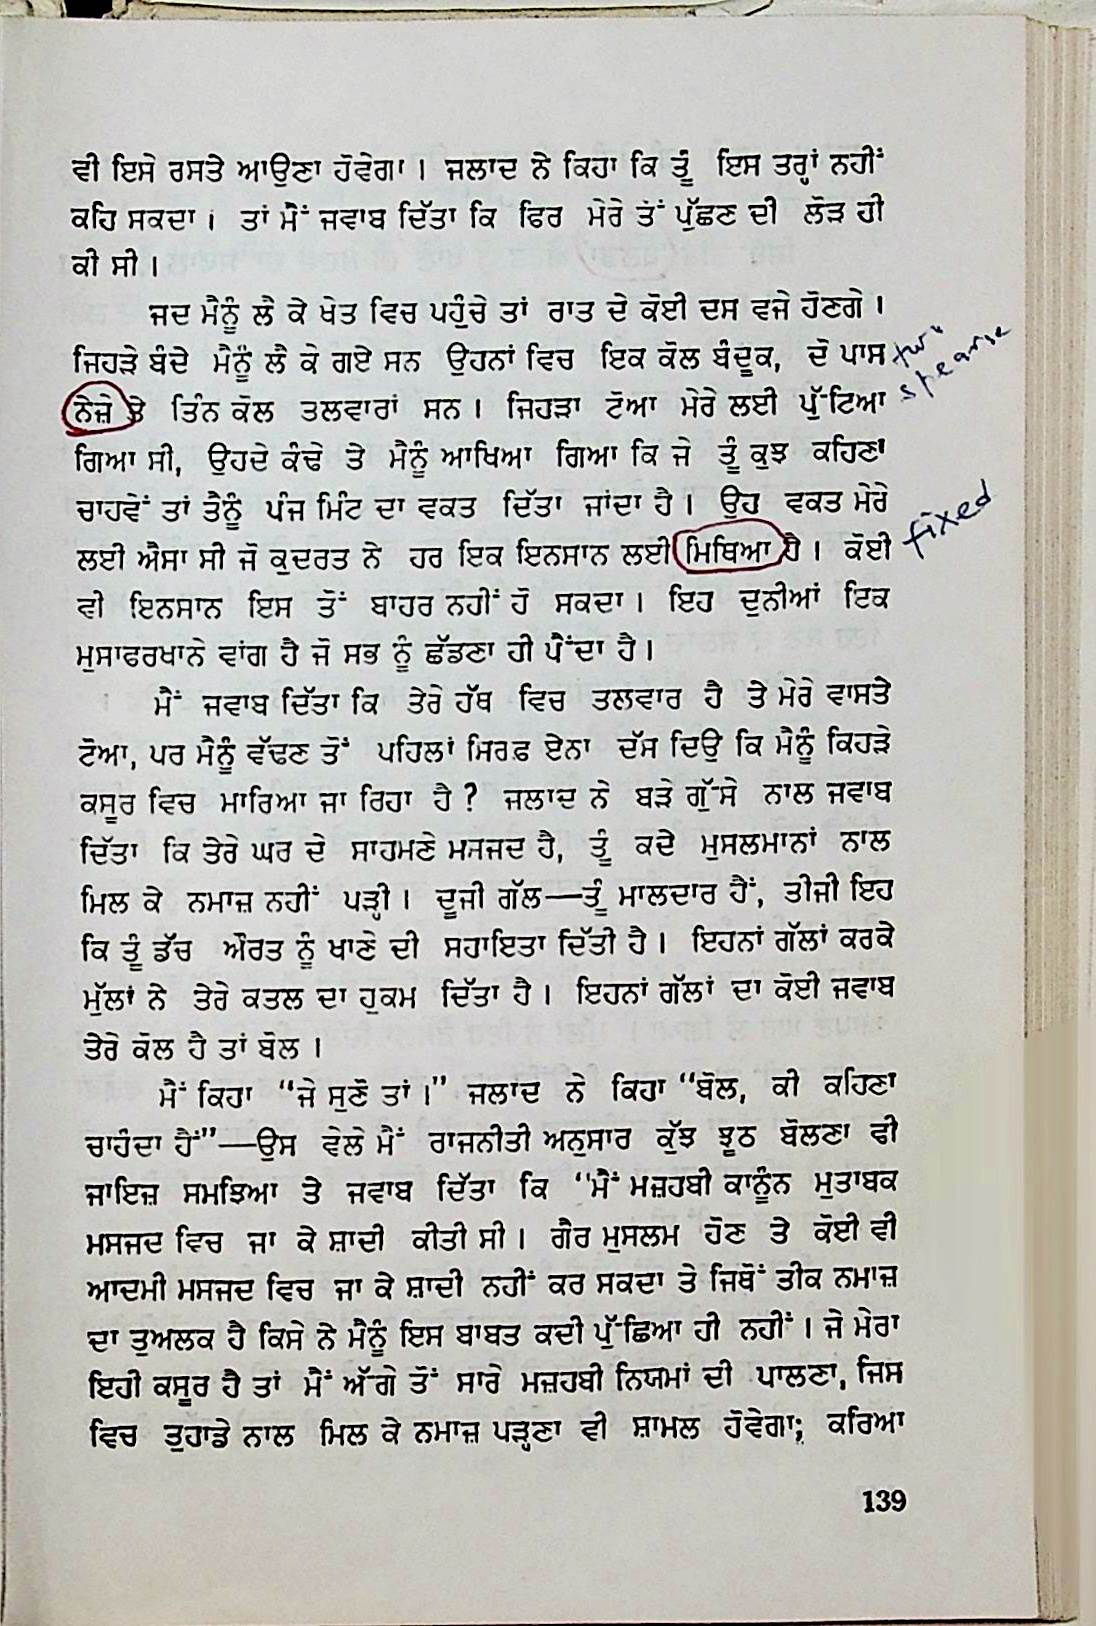 ਵੀ ਇਸੇ ਰਸਤੇ ਆਉਣਾ ਹੋਵੇਗਾ । ਜਲਾਦ ਨੇ ਕਿਹਾ ਕਿ ਤੂੰ ਇਸ ਤਰ੍ਹਾਂ ਨਹੀਂ
ਕਹਿ ਸਕਦਾ । ਤਾਂ ਮੈਂ ਜਵਾਬ ਦਿੱਤਾ ਕਿ ਫਿਰ ਮੇਰੇ ਤੋਂ ਪੁੱਛਣ ਦੀ ਲੋੜ ਹੀ
ਕੀ ਸੀ ।
ਜਦ ਮੈਨੂੰ ਲੈ ਕੇ ਖੇਤ ਵਿਚ ਪਹੁੰਚੇ ਤਾਂ ਰਾਤ ਦੇ ਕੋਈ ਦਸ ਵਜੇ ਹੋਣਗੇ ।
ਜਿਹੜੇ ਬੰਦੇ ਮੈਨੂੰ ਲੈ ਕੇ ਗਏ ਸਨ ਉਹਨਾਂ ਵਿਚ ਇਕ ਕੋਲ ਬੰਦੂਕ, ਦੋ ਪਾਸ
ਨੇਜ਼ੇ ਤੇ ਤਿੰਨ ਕੋਲ ਤਲਵਾਰਾਂ ਸਨ । ਜਿਹੜਾ ਟੋਆ ਮੇਰੇ ਲਈ ਪੁੱਟਿਆ
ਗਿਆ ਸੀ, ਉਹਦੇ ਕੰਢੇ ਤੇ ਮੈਨੂੰ ਆਖਿਆ ਗਿਆ ਕਿ ਜੇ ਤੂੰ ਕੁਝ ਕਹਿਣਾ
ਚਾਹਵੇਂ ਤਾਂ ਤੈਨੂੰ ਪੰਜ ਮਿੰਟ ਦਾ ਵਕਤ ਦਿੱਤਾ ਜਾਂਦਾ ਹੈ । ਉਹ ਵਕਤ ਮੇਰੇ
ਲਈ ਐਸਾ ਸੀ ਜੋ ਕੁਦਰਤ ਨੇ ਹਰ ਇਕ ਇਨਸਾਨ ਲਈ ਮਿਥਿਆ ਹੈ । ਕੋਈ
fixed
ਵੀ ਇਨਸਾਨ ਇਸ ਤੋਂ ਬਾਹਰ ਨਹੀਂ ਹੋ ਸਕਦਾ । ਇਹ ਦੁਨੀਆਂ ਇਕ
ਮੁਸਾਫਰਖਾਨੇ ਵਾਂਗ ਹੈ ਜੋ ਸਭ ਨੂੰ ਛੱਡਣਾ ਹੀ ਪੈਂਦਾ ਹੈ ।
ਮੈਂ ਜਵਾਬ ਦਿੱਤਾ ਕਿ ਤੇਰੇ ਹੱਥ ਵਿਚ ਤਲਵਾਰ ਹੈ ਤੇ ਮੇਰੇ ਵਾਸਤੇ
ਟੋਆ, ਪਰ ਮੈਨੂੰ ਵੱਢਣ ਤੋਂ ਪਹਿਲਾਂ ਸਿਰਫ਼ ਏਨਾ ਦੱਸ ਦਿਉ ਕਿ ਮੈਨੂੰ ਕਿਹੜੇ
ਕਸੂਰ ਵਿਚ ਮਾਰਿਆ ਜਾ ਰਿਹਾ ਹੈ ? ਜਲਾਦ ਨੇ ਬੜੇ ਗੁੱਸੇ ਨਾਲ ਜਵਾਬ
ਦਿੱਤਾ ਕਿ ਤੇਰੇ ਘਰ ਦੇ ਸਾਹਮਣੇ ਮਸਜਦ ਹੈ, ਤੂੰ ਕਦੇ ਮੁਸਲਮਾਨਾਂ ਨਾਲ
ਮਿਲ ਕੇ ਨਮਾਜ਼ ਨਹੀਂ ਪੜ੍ਹੀ । ਦੂਜੀ ਗੱਲ—ਤੂੰ ਮਾਲਦਾਰ ਹੈਂ, ਤੀਜੀ ਇਹ
ਕਿ ਤੂੰ ਡੱਚ ਔਰਤ ਨੂੰ ਖਾਣੇ ਦੀ ਸਹਾਇਤਾ ਦਿੱਤੀ ਹੈ । ਇਹਨਾਂ ਗੱਲਾਂ ਕਰਕੇ
ਮੁੱਲਾਂ ਨੇ ਤੇਰੇ ਕਤਲ ਦਾ ਹੁਕਮ ਦਿੱਤਾ ਹੈ । ਇਹਨਾਂ ਗੱਲਾਂ ਦਾ ਕੋਈ ਜਵਾਬ
ਤੇਰੇ ਕੋਲ ਹੈ ਤਾਂ ਬੋਲ ।
ਮੈਂ ਕਿਹਾ “ਜੇ ਸੁਣੋ ਤਾਂ ।” ਜਲਾਦ ਨੇ ਕਿਹਾ “ਬੋਲ, ਕੀ ਕਹਿਣਾ
ਚਾਹੰਦਾ ਹੈਂ”—ਉਸ ਵੇਲੇ ਮੈਂ ਰਾਜਨੀਤੀ ਅਨੁਸਾਰ ਕੁੱਝ ਝੂਠ ਬੋਲਣਾ ਵੀ
ਜਾਇਜ਼ ਸਮਝਿਆ ਤੇ ਜਵਾਬ ਦਿੱਤਾ ਕਿ “ਮੈਂ ਮਜ਼ਹਬੀ ਕਾਨੂੰਨ ਮੁਤਾਬਕ
ਮਸਜਦ ਵਿਚ ਜਾ ਕੇ ਸ਼ਾਦੀ ਕੀਤੀ ਸੀ । ਗੈਰ ਮੁਸਲਮ ਹੋਣ ਤੇ ਕੋਈ ਵੀ
ਆਦਮੀ ਮਸਜਦ ਵਿਚ ਜਾ ਕੇ ਸ਼ਾਦੀ ਨਹੀਂ ਕਰ ਸਕਦਾ ਤੇ ਜਿਥੋਂ ਤੀਕ ਨਮਾਜ਼
ਦਾ ਤੁਅਲਕ ਹੈ ਕਿਸੇ ਨੇ ਮੈਨੂੰ ਇਸ ਬਾਬਤ ਕਦੀ ਪੁੱਛਿਆ ਹੀ ਨਹੀਂ । ਜੇ ਮੇਰਾ
ਇਹੀ ਕਸੂਰ ਹੈ ਤਾਂ ਮੈਂ ਅੱਗੇ ਤੋਂ ਸਾਰੇ ਮਜ਼ਹਬੀ ਨਿਯਮਾਂ ਦੀ ਪਾਲਣਾ, ਜਿਸ
ਵਿਚ ਤੁਹਾਡੇ ਨਾਲ ਮਿਲ ਕੇ ਨਮਾਜ਼ ਪੜ੍ਹਣਾ ਵੀ ਸ਼ਾਮਲ ਹੋਵੇਗਾ; ਕਰਿਆ
139